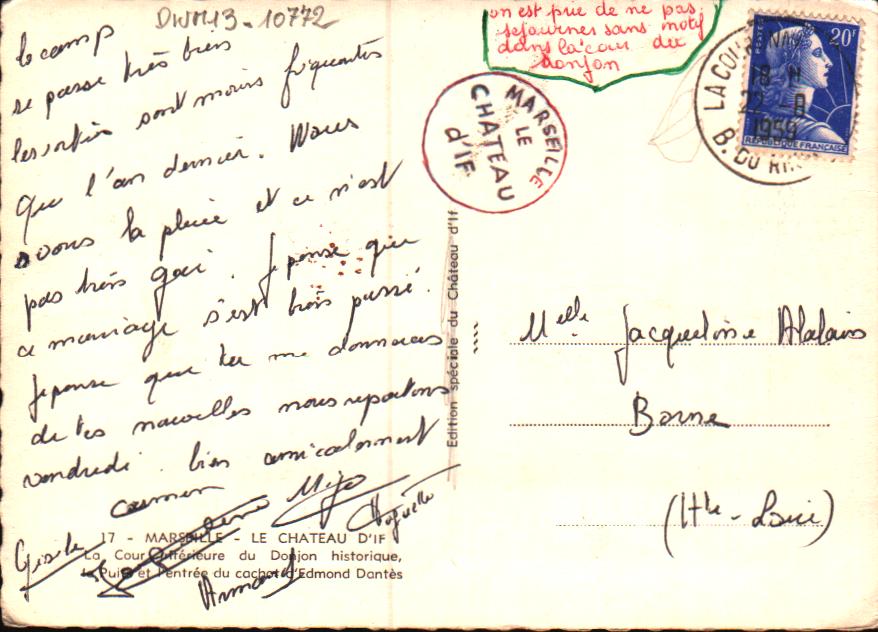 DWM13-10772
le camp
se passe très bien
les sorties sont moins fréquentes
que l'an dernier. Nous
avons la pluie et ce n'est
pas très gai. Je pense que
ce mariage s'est très bien passé.
Je pense que tu me donneras
de tes nouvelles nous repartons
vendredi. bien amicalement
Carmen
Gisèle
Armand
17 - MARSEILLE - LE CHATEAU D'IF
La Cour intérieure du Donjon historique,
le Puits et l'entrée du cachot d'Edmond Dantès
Edition spéciale du Château d'If
on est prié de ne pas
séjourner sans motif
dans la cour du
donjon
MARSEILLE
LE
CHATEAU
d'IF
18 H
22 -8
1959
B. DU RH
POSTES
20F
REPUBLIQUE FRANCAISE
Melle Jacqueline
Borne
(Hte - Loire)